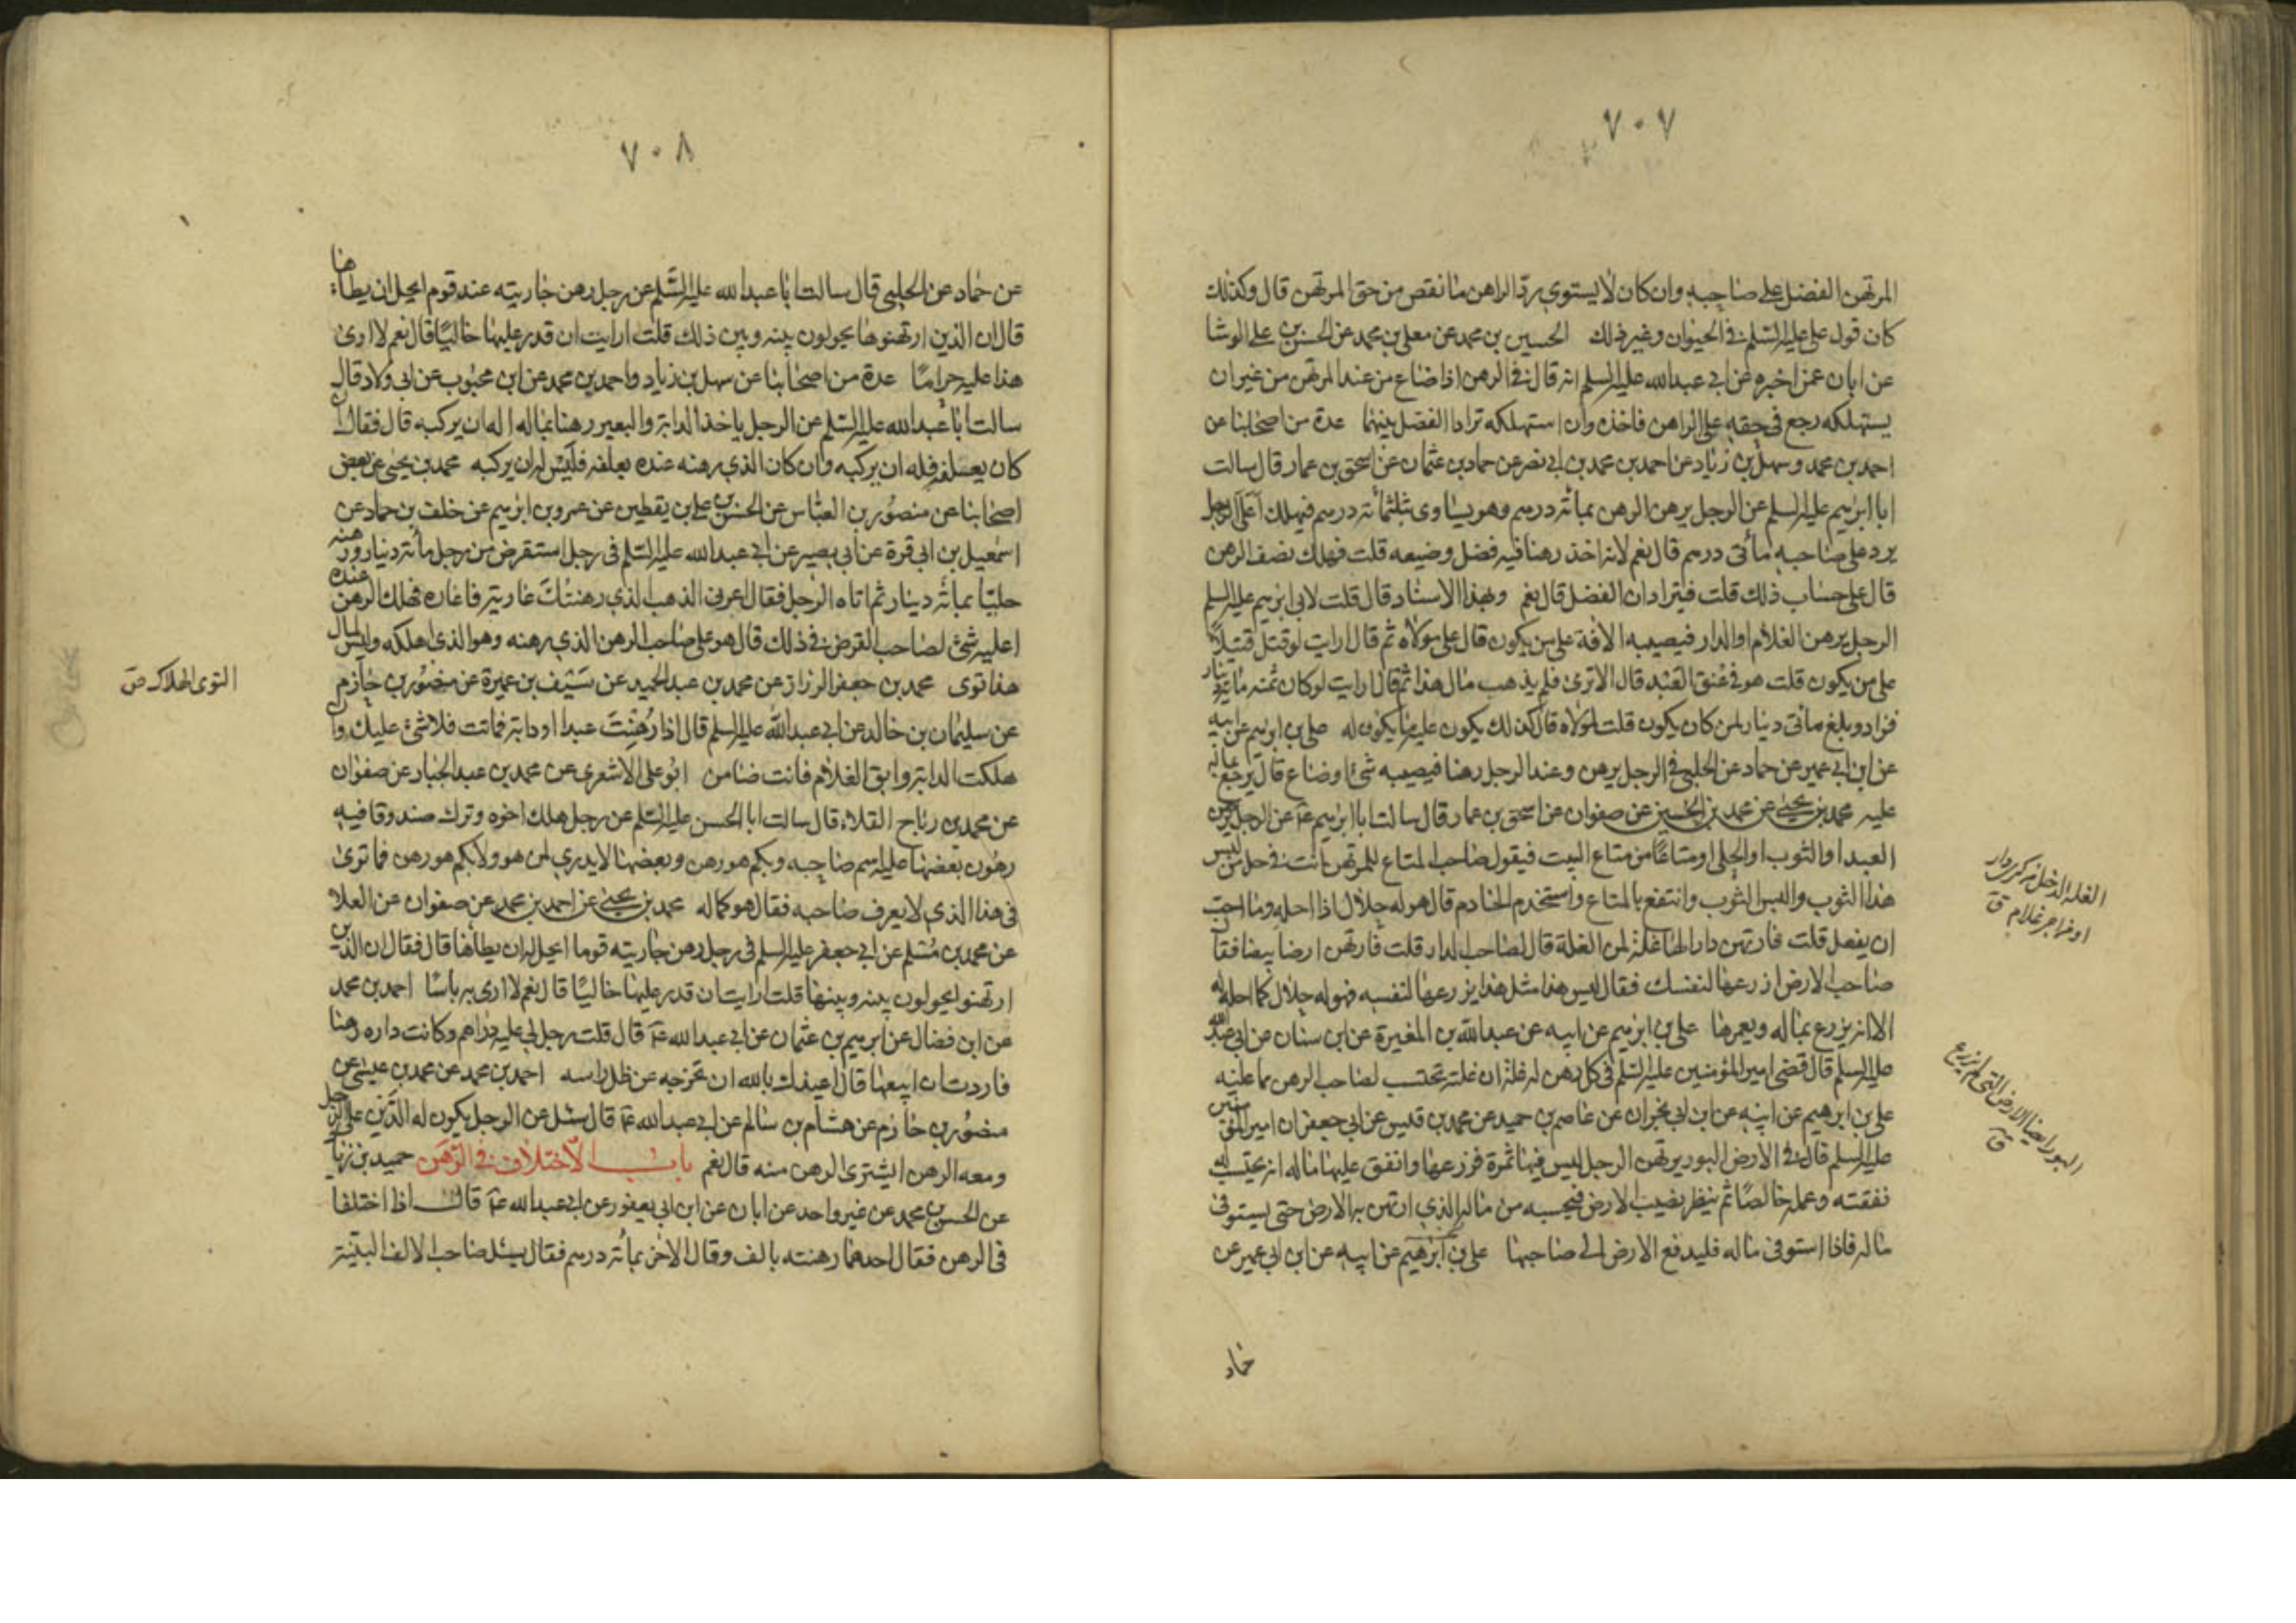 ٧٠٧
المرتهن الفضل على صاحبه وان كان لا يستوى يرد الراهن ما نقص من حق المرتهن قال وكذلك
كان قول على عليه السلم فى الحيوان وغير ذلك الحسين بن محمد عن معلى بن محمد عن الحسن بن على الوشا
عن ابان عمن اخبره عن ابى عبدالله عليه السلم انه قال فى الرهن اذا ضاع من عند المرتهن من غير ان
يستهلكه رجع فى حقه على الراهن فاخذه وان استهلكه ترادا الفضل بينهما عدة من اصحابنا عن
احمد بن محمد وسهل بن زياد عن احمد بن محمد بن ابى نصر عن حماد بن عثمان عن اسحق بن عمار قال سالت
ابا ابرهيم عليه السلم عن الرجل يرهن الرهن بمائة درهم وهو يساوى ثلثمائة درهم فيهلك اعلى الرجل ان
يرد على صاحبه مأتى درهم قال نعم لانه اخذ رهنا فيه فضل وضيعه قلت فهلك نصف الرهن
قال على حساب ذلك قلت فيترادان الفضل قال نعم وبهذا الاسناد قال قلت لابى ابرهيم عليه السلم
الرجل يرهن الغلام او الدار فيصيبه الافة على من يكون قال على مولاه ثم قال ارايت لو قتل قتيلا
على من يكون قلت هو فى عنق العبد قال الا ترى فلم يذهب مال هذا ثم قال ارايت لو كان ثمنه مائة دينار
فزاد وبلغ مائتى دينار لمن كان يكون قلت لمولاه قال كذلك يكون عليه ما يكون له على بن ابرهيم عن ابيه
عن ابن ابى عمير عن حماد عن الحلبى فى الرجل يرهن عند الرجل رهنا فيصيبه شئ او ضاع قال يرجع بماله
عليه محمد بن يحيى عن محمد بن الحسين عن صفوان عن اسحق بن عمار قال سالت ابا ابرهيم ع عن الرجل يرهن
العبد او الثوب او الحلى او متاعا من متاع البيت فيقول صاحب المتاع للمرتهن انت فى حل من لبس
هذا الثوب والبس الثوب وانتفع بالمتاع واستخدم الخادم قال هو له حلال اذا احله وما احب
ان يفعل قلت فارتهن دارا لها غلة لمن الغلة قال لصاحب الدار قلت فارتهن ارضا بيضا فقال
صاحب الارض ازرعها لنفسك فقال ليس هذا مثل هذا يزرعها لنفسه فهو له حلال كما احله له
الا انه يزرع بماله ويعمرها على بن ابرهيم عن ابيه عن عبدالله بن المغيرة عن ابن سنان عن ابى عبدالله
عليه السلم قال قضى امير المؤمنين عليه السلم فى كل رهن له غلة ان غلته تحتسب لصاحب الرهن مما عليه
على بن ابرهيم عن ابيه عن ابن ابى نجران عن عاصم بن حميد عن محمد بن قيس عن ابى جعفر ان امير المؤمنين
عليه السلم قال فى الارض البور يرتهن الرجل ليس فيها ثمرة فزرعها وانفق عليها ماله انه يحتسب له
نفقته وعمله خالصا ثم ينظر نصيب الارض فيحسبه من ماله الذى ارتهن به الارض حتى يستوفى
ماله فاذا استوفى ماله فليدفع الارض الى صاحبها على بن ابرهيم عن ابيه عن ابن ابى عمير عن
حماد
الغلة الدخل من كرى دار
او اجر غلام ق
البور ايضا الارض التى لم تزرع
ق
٧٠٨
عن حماد عن الحلبى قال سالت ابا عبدالله عليه السلم عن رجل رهن جاريته عند قوم ايحل ان يطاها
قال ان الذين ارتهنوها يحولون بينه وبين ذلك قلت ارايت ان قدر عليها خاليا قال نعم لا ارى
هذا عليه حراما عدة من اصحابنا عن سهل بن زياد واحمد بن محمد عن ابن محبوب عن ابى ولاد قال
سالت ابا عبدالله عليه السلم عن الرجل ياخذ الدابة والبعير رهنا بماله اله ان يركبه قال فقال ان
كان يعلفه فله ان يركبه وان كان الذى رهنه عنده يعلفه فليس له ان يركبه محمد بن يحيى عن بعض
اصحابنا عن منصور بن العباس عن الحسن بن على بن يقطين عن عمرو بن ابرهيم عن خلف بن حماد عن
اسمعيل بن ابى قرة عن ابى بصير عن ابى عبدالله عليه السلم فى رجل استقرض من رجل مائة دينار ورهنه
حليا بمائة دينار ثم اتاه الرجل فقال اعرنى الذهب الذى رهنتك عارية فاعاره فهلك الرهن عنده
اعليه شئ لصاحب القرض فى ذلك قال هو على صاحب الرهن الذى رهنه وهو الذى اهلكه وليس لمال
هذا توى محمد بن جعفر الرزاز عن محمد بن عبد الحميد عن سيف بن عميرة عن منصور بن حازم
عن سليمان بن خالد عن ابى عبدالله عليه السلم قال اذا رهنت عبدا او دابة فماتت فلا شئ عليك وان
هلكت الدابة وابق الغلام فانت ضامن ابو على الاشعرى عن محمد بن عبد الجبار عن صفوان
عن محمد بن رباح القلاء قال سالت ابا الحسن عليه السلم عن رجل هلك اخوه وترك صندوقا فيه
رهون بعضها عليه اسم صاحبه وبكم هو رهن وبعضها لا يدرى لمن هو ولا بكم هو رهن فما ترى
فى هذا الذى لا يعرف صاحبه فقال هو كماله محمد بن يحيى عن احمد بن محمد عن صفوان عن العلاء
عن محمد بن مسلم عن ابى جعفر عليه السلم فى رجل رهن جاريته قوما ايحل له ان يطأها قال فقال ان الذين
ارتهنو يحولون بينه وبينها قلت ارايت ان قدر عليها خاليا قال نعم لا ارى به باسا احمد بن محمد
عن ابن فضال عن ابرهيم بن عثمان عن ابى عبدالله ع قال قلت رجل لى عليه دراهم وكانت داره رهنا
فاردت ان ابيعها قال اعيذك بالله ان تخرجه عن ظل راسه احمد بن محمد عن محمد بن عيسى عن
منصور بن حازم عن هشام بن سالم عن ابى عبدالله ع قال سئل عن الرجل يكون له الدين على الرجل
ومعه الرهن ايشترى الرهن منه قال نعم باب الاختلاف فى الرهن حميد بن زياد
عن الحسن بن محمد عن غير واحد عن ابان عن ابن ابى يعفور عن ابى عبدالله ع قال اذا اختلفا
فى الرهن فقال احدهما رهنته بالف وقال الاخر بمأئة درهم فقال يسئل صاحب الالف البينة
التوى الهلاك ص